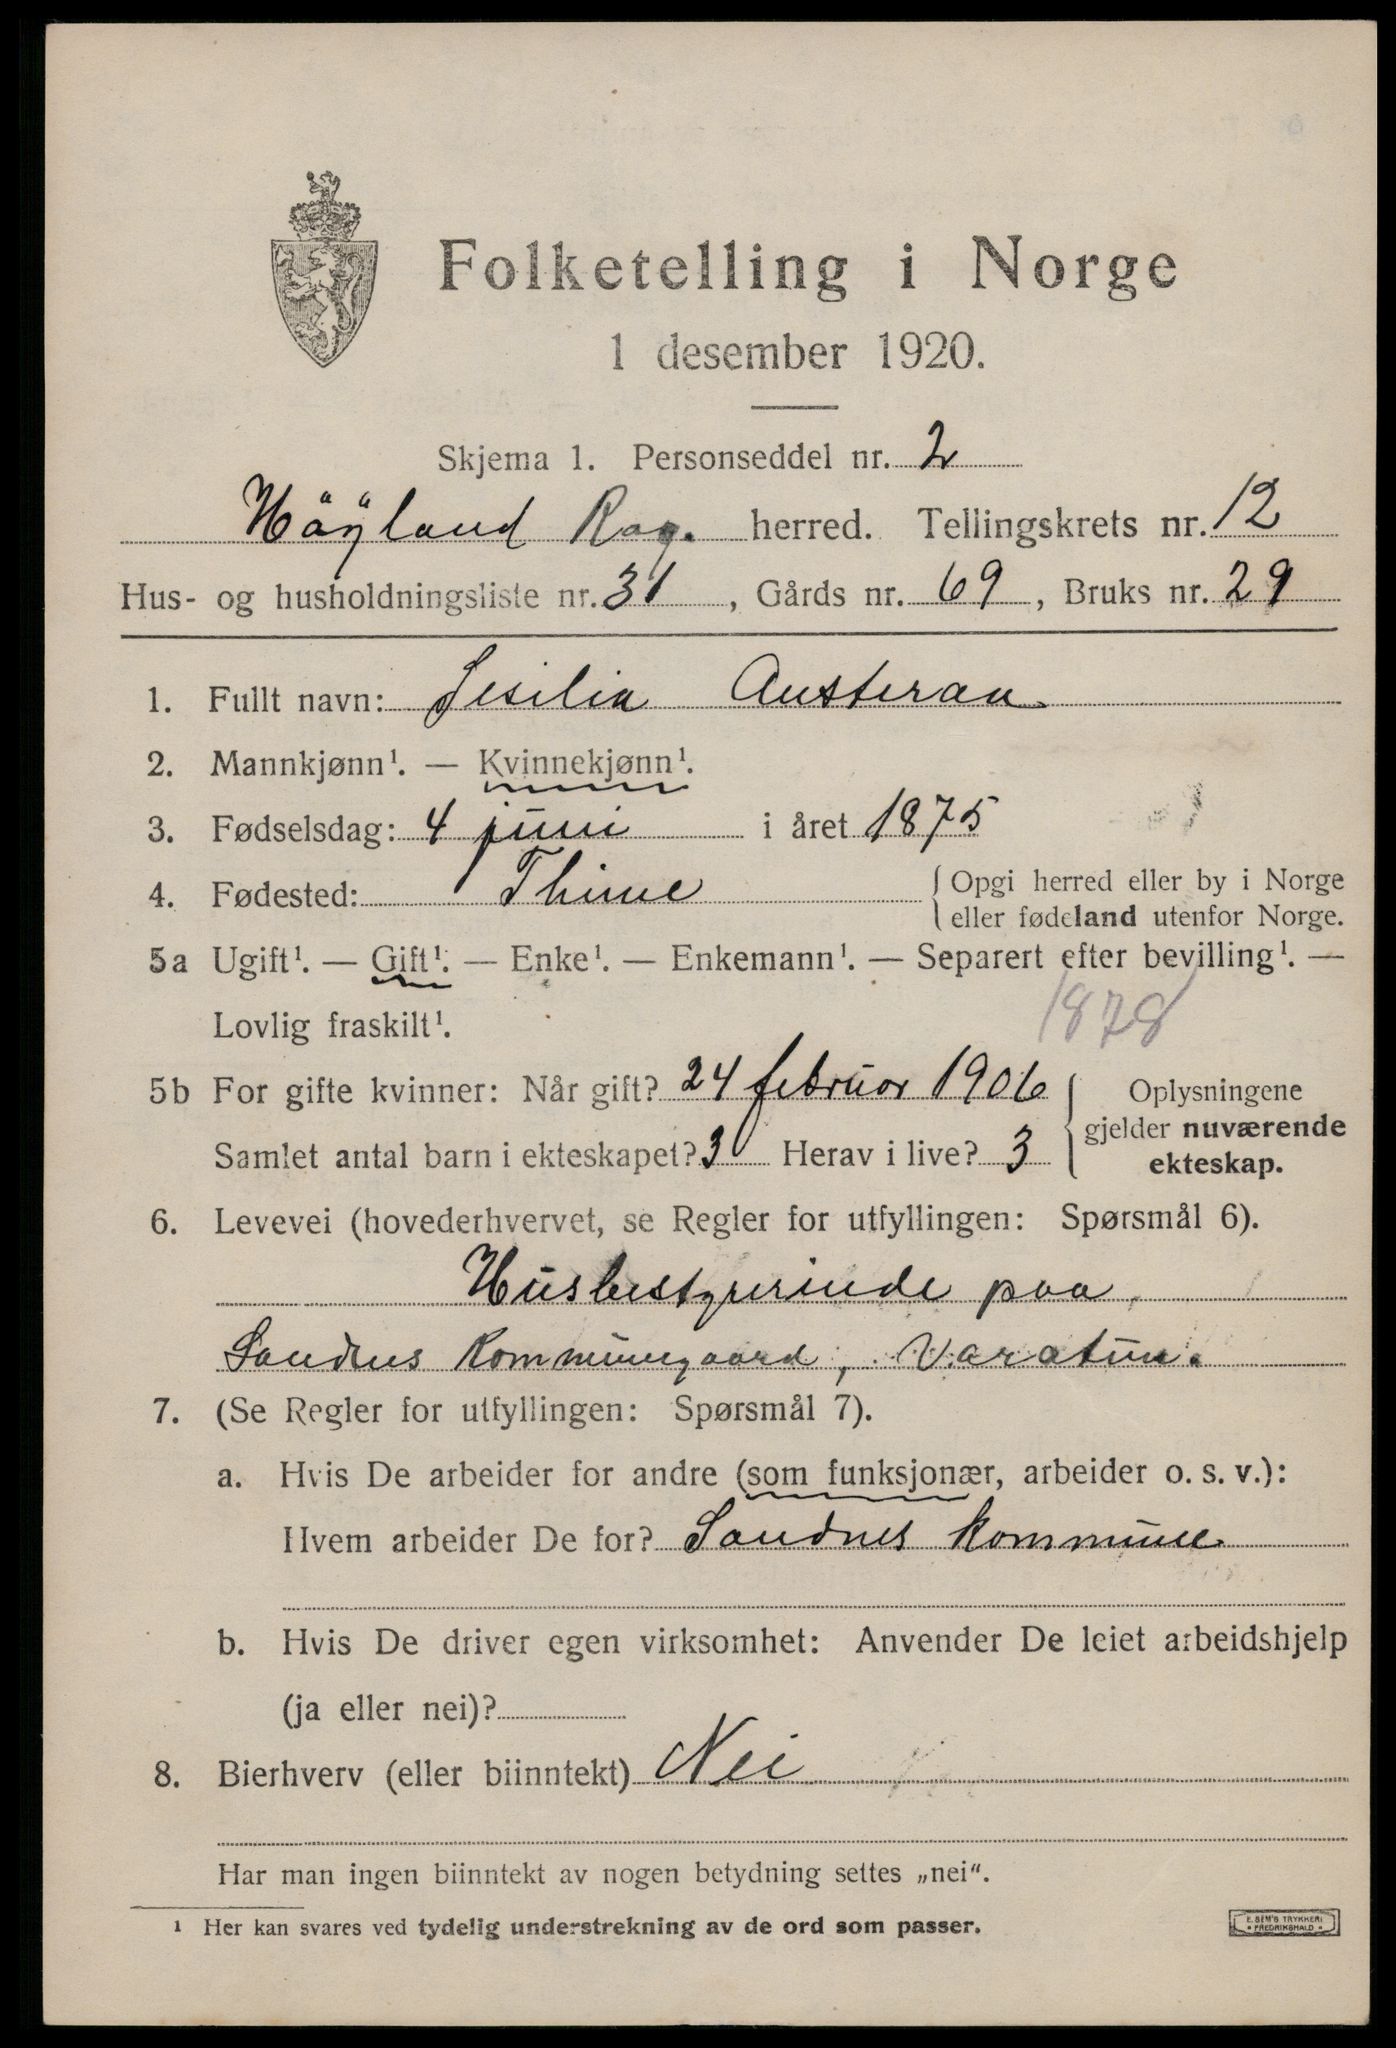 Folketelling i Norge
1 desember 1920.
Skjema 1. Personseddel nr. 2
Höyland Rog. herred. Tellingskrets nr. 12
Hus- og husholdningsliste nr. 31, Gårds nr. 69, Bruks nr. 29
1. Fullt navn: Sesilia Austeraa
2. Mannkjønn¹. — Kvinnekjønn¹.
3. Fødselsdag: 4 juni i året 1875
4. Fødested: Thime {Opgi herred eller by i Norge
eller fødeland utenfor Norge.
5a Ugift¹. — Gift¹. — Enke¹. — Enkemann¹. — Separert efter bevilling¹. —
Lovlig fraskilt¹. 1878
5b For gifte kvinner: Når gift? 24 februar 1906 {Oplysningene
gjelder nuværende
Samlet antal barn i ekteskapet? 3 Herav i live? 3 ekteskap.
6. Levevei (hovederhvervet, se Regler for utfyllingen: Spørsmål 6).
Husbestyrerinde paa
Sandnes Kommunegaard, Varatun.
7. (Se Regler for utfyllingen: Spørsmål 7).
a. Hvis De arbeider for andre (som funksjonær, arbeider o. s. v.):
Hvem arbeider De for? Sandnes kommune
b. Hvis De driver egen virksomhet: Anvender De leiet arbeidshjelp
(ja eller nei)?
8. Bierhverv (eller biinntekt) Nei
Har man ingen biinntekt av nogen betydning settes „nei“.
¹ Her kan svares ved tydelig understrekning av de ord som passer.
E. SEM'S TRYKKERI
• FREDRIKSHALD •